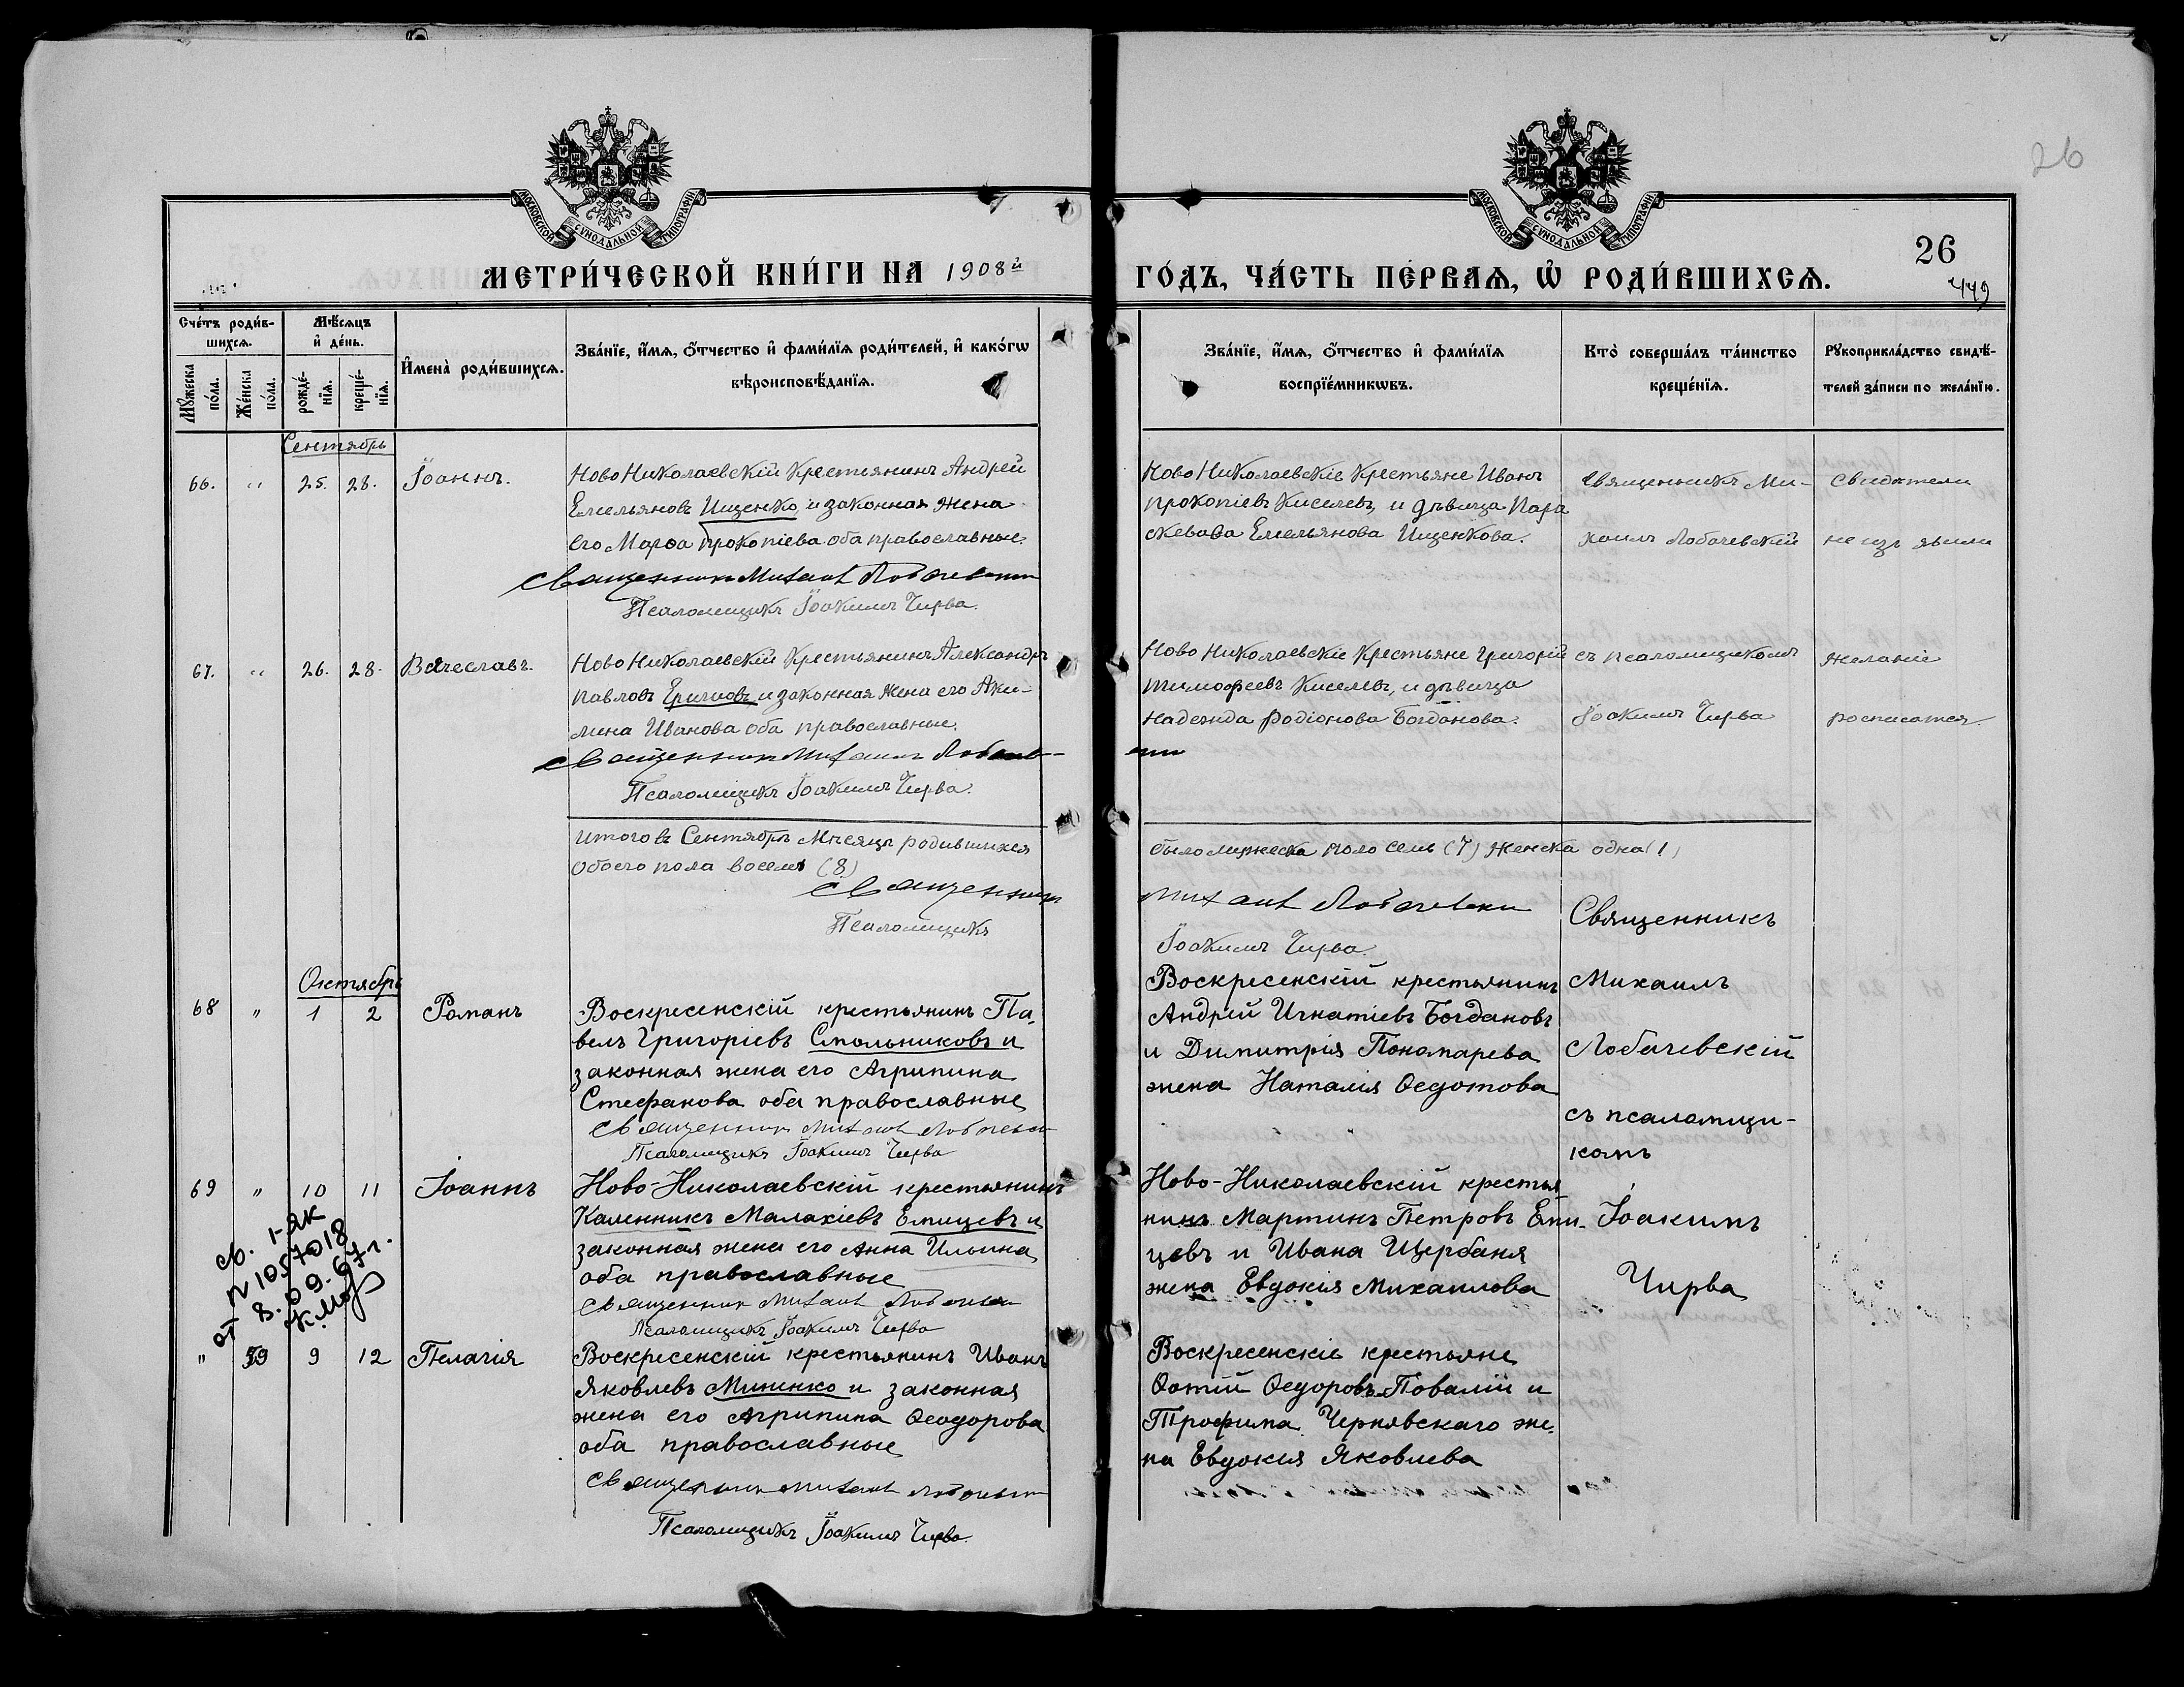 26
МОСКОВСКОЙ СѴНОДАЛЬНОЙ ТИПОГРАФІИ
МОСКОВСКОЙ СѴНОДАЛЬНОЙ ТИПОГРАФІИ
26
МЕТРИ́ЧЕСКОЙ КНИ́ГИ НА 1908й
ГО́ДЪ, ЧА́СТЬ ПЕ́РВАѦ, Ѽ РОДИ́ВШИХСѦ.
449
Сче́тъ роди́вшихсѧ.
Мѣ́сѧцъ и҆ де́нь.
Мꙋ́жеска по́ла.
Же́нска по́ла.
рожде́нїѧ.
креще́нїѧ.
И҆мена̀ роди́вшихсѧ.
Зва́нїе, и҆́мѧ, ѻ҆́тчество и҆ фами́лїѧ роди́телей, и҆ како́гѡ
вѣроисповѣ́данїѧ.
Зва́нїе, и҆́мѧ, ѻ҆́тчество и҆ фами́лїѧ
воспрїе́мникѡвъ.
Кто̀ соверша́лъ та́инство
креще́нїѧ.
Рꙋкоприкла́дство свидѣ́-
телей за́писи по жела́нїю.
Сентябрь
66. " 25. 28. Іоаннъ.
Ново Николаевскій Крестьянинъ Андрей
Емельяновъ Ищенко, и законная жена
его Марѳа Прокопіева оба православные.
Священникъ Михаилъ Лобачевскій
Псаломщикъ Іоакимъ Чирва.
Ново Николаевскіе Крестьяне Иванъ
Прокопіевъ Киселевъ, и дѣвица Пара
скевава Емельянова Ищенкова.
Священникъ Ми-
хаилъ Лобачевскій
Свидетели
не изъ явили
67. " 26. 28. Вячеславъ.
Ново Николаевскій Крестьянинъ Александръ
Павловъ и законная жена его Аки-
лина Иванова оба православные.
Священникъ Михаилъ Лобачев-
скій
Псаломщикъ Іоакимъ Чирва.
Ново Николаевскіе Крестьяне Григорій
Тимофеевъ Киселевъ, и дѣвица
Надежда Родіонова Богданова.
съ псаломщикомъ
Іоакимъ Чирва
желаніе
росписатся
Итого въ Сентябрѣ Мѣсяцѣ родившихся
обоего пола восемь (8)
было мужеска поло семь (7) женска одна (1)
Священникъ
Михаилъ Лобачевскій
Псаломщикъ
Іоакимъ Чирва.
Октябрь
68 " 1 2 Романъ
Воскресенскій крестьянинъ Па-
велъ Григоріевъ Смольниковъ и
законная жена его Агрипина
Стефанова оба православные
Священникъ Михаилъ Лобачевскій
Псаломщикъ Іоакимъ Чирва
Воскресенскій крестьянинъ
Андрей Игнатіевъ Богдановъ
и Димитрія Пономарева
жена Наталія Ѳедотова
Священникъ
Михаилъ
Лобачевскій
съ псаломщи-
комъ
Іоакимъ
Чирва
69 " 10 11 Іоаннъ
Ново-Николаевскій крестьянинъ
Каленникъ Малахіевъ Епицевъ и
законная жена его Анна Ильина
оба православные
Священникъ Михаилъ Лобачевскій
Псаломщикъ Іоакимъ Чирва
Ново-Николаевскій крестья
нинъ Мартинъ Петровъ Епи-
цевъ и Ивана Щербаня
жена Евдокія Михаилова
св. 1-ЯК
N 1057018
от 8.09.67г.
" 59 9 12 Пелагія
Воскресенскій крестьянинъ Иванъ
Яковлевъ Миненко и законная
жена его Агрипина Ѳеодорова
оба православные
Священникъ Михаилъ Лобачевскій
Псаломщикъ Іоакимъ Чирва.
Воскресенскіе крестьяне
Фотій Ѳедоровъ Повалій и
Трофима Чернявскаго же-
на Евдокія Яковлева